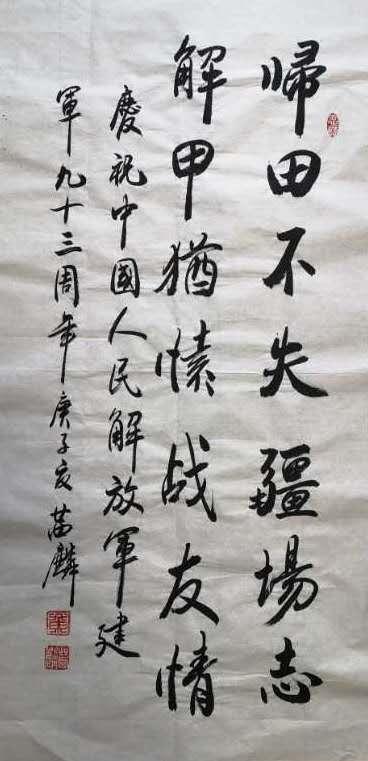 帰田不失疆場志
解甲猶懷战友情
慶祝中國人民解放軍建
軍九十三周年庚子夏苗麟